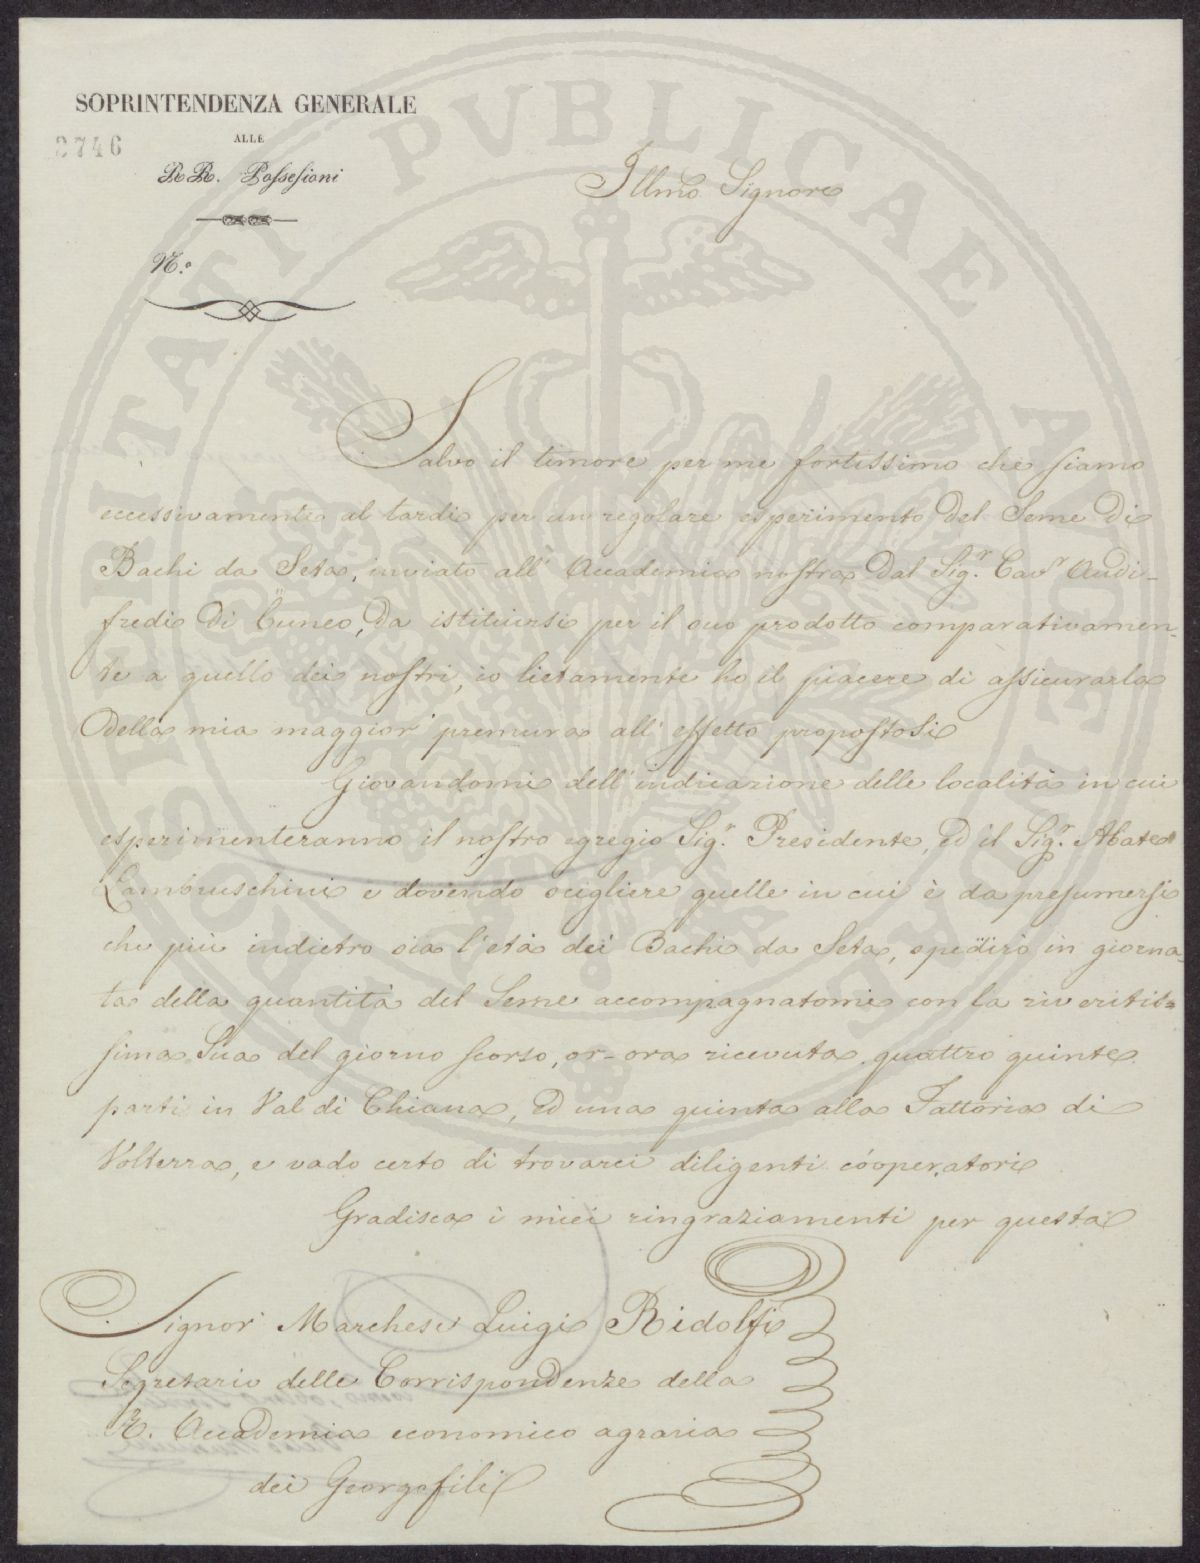 PROSPERITATI PVBLICAE AVGENDAE
SOPRINTENDENZA GENERALE
ALLE
2746
RR. Possesioni
N.º
Illmo Signore
Salvo il timore per me fortissimo che siamo
eccessivamente al tardi per un regolare esperimento del Seme di
Bachi da Seta, inviato all' Accademia nostra dal Sig.r Cavr Audi-
fredi di Cuneo, da istituirsi per il suo prodotto comparativamen-
te a quello dei nostri, io lietamente ho il piacere di assicurarla
della mia maggior premura all' effetto propostosi
Giovandomi dell' indicazione delle località in cui
esperimenteranno il nostro egregio Sig.r Presidente, ed il Sig.r Abate
Lambruschini e dovendo scigliere quelle in cui è da presumersi
che più indietro sia l'età dei Bachi da Seta, spedirò in giorna-
ta della quantità del Seme accompagnatomi con la riveritis=
sima Sua del giorno scorso, or-ora ricevuta quattro quinte
parti in Val di Chiana, ed una quinta alla Fattoria di
Volterra, e vado certo di trovarci diligenti cooperatori
Gradisca i miei ringraziamenti per questa
Signor Marchese Luigi Ridolfi
Segretario delle Corrispondenze della
R. Accademia economico agraria
dei Georgofili